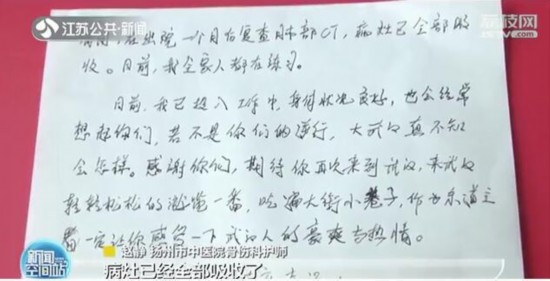 江苏公共·新闻
荔枝网
在出院一个月后复查肺部CT，病灶已全部吸
收。目前，我全家人都在练习。
目前，我已投入工作中，身体状况良好，也会经常
想起你们，若不是你们的逆行，大武汉真不知
会怎样。感谢你们，期待你再次来到武汉，来武汉
轻轻松松的逛一番，吃遍大街小巷子，作为东道主
一定让你感受一下武汉人的豪爽与热情。
新闻
空间站
赵静 扬州市中医院骨伤科护师
病灶已经全部吸收了